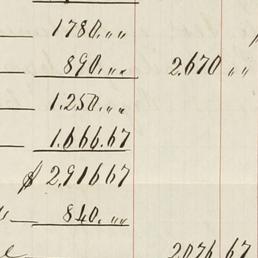 1780.,,
890.,, 2.670 ,,
1.250.,,
1.666.67
$ 2,916 67
840. ,,
2076 67